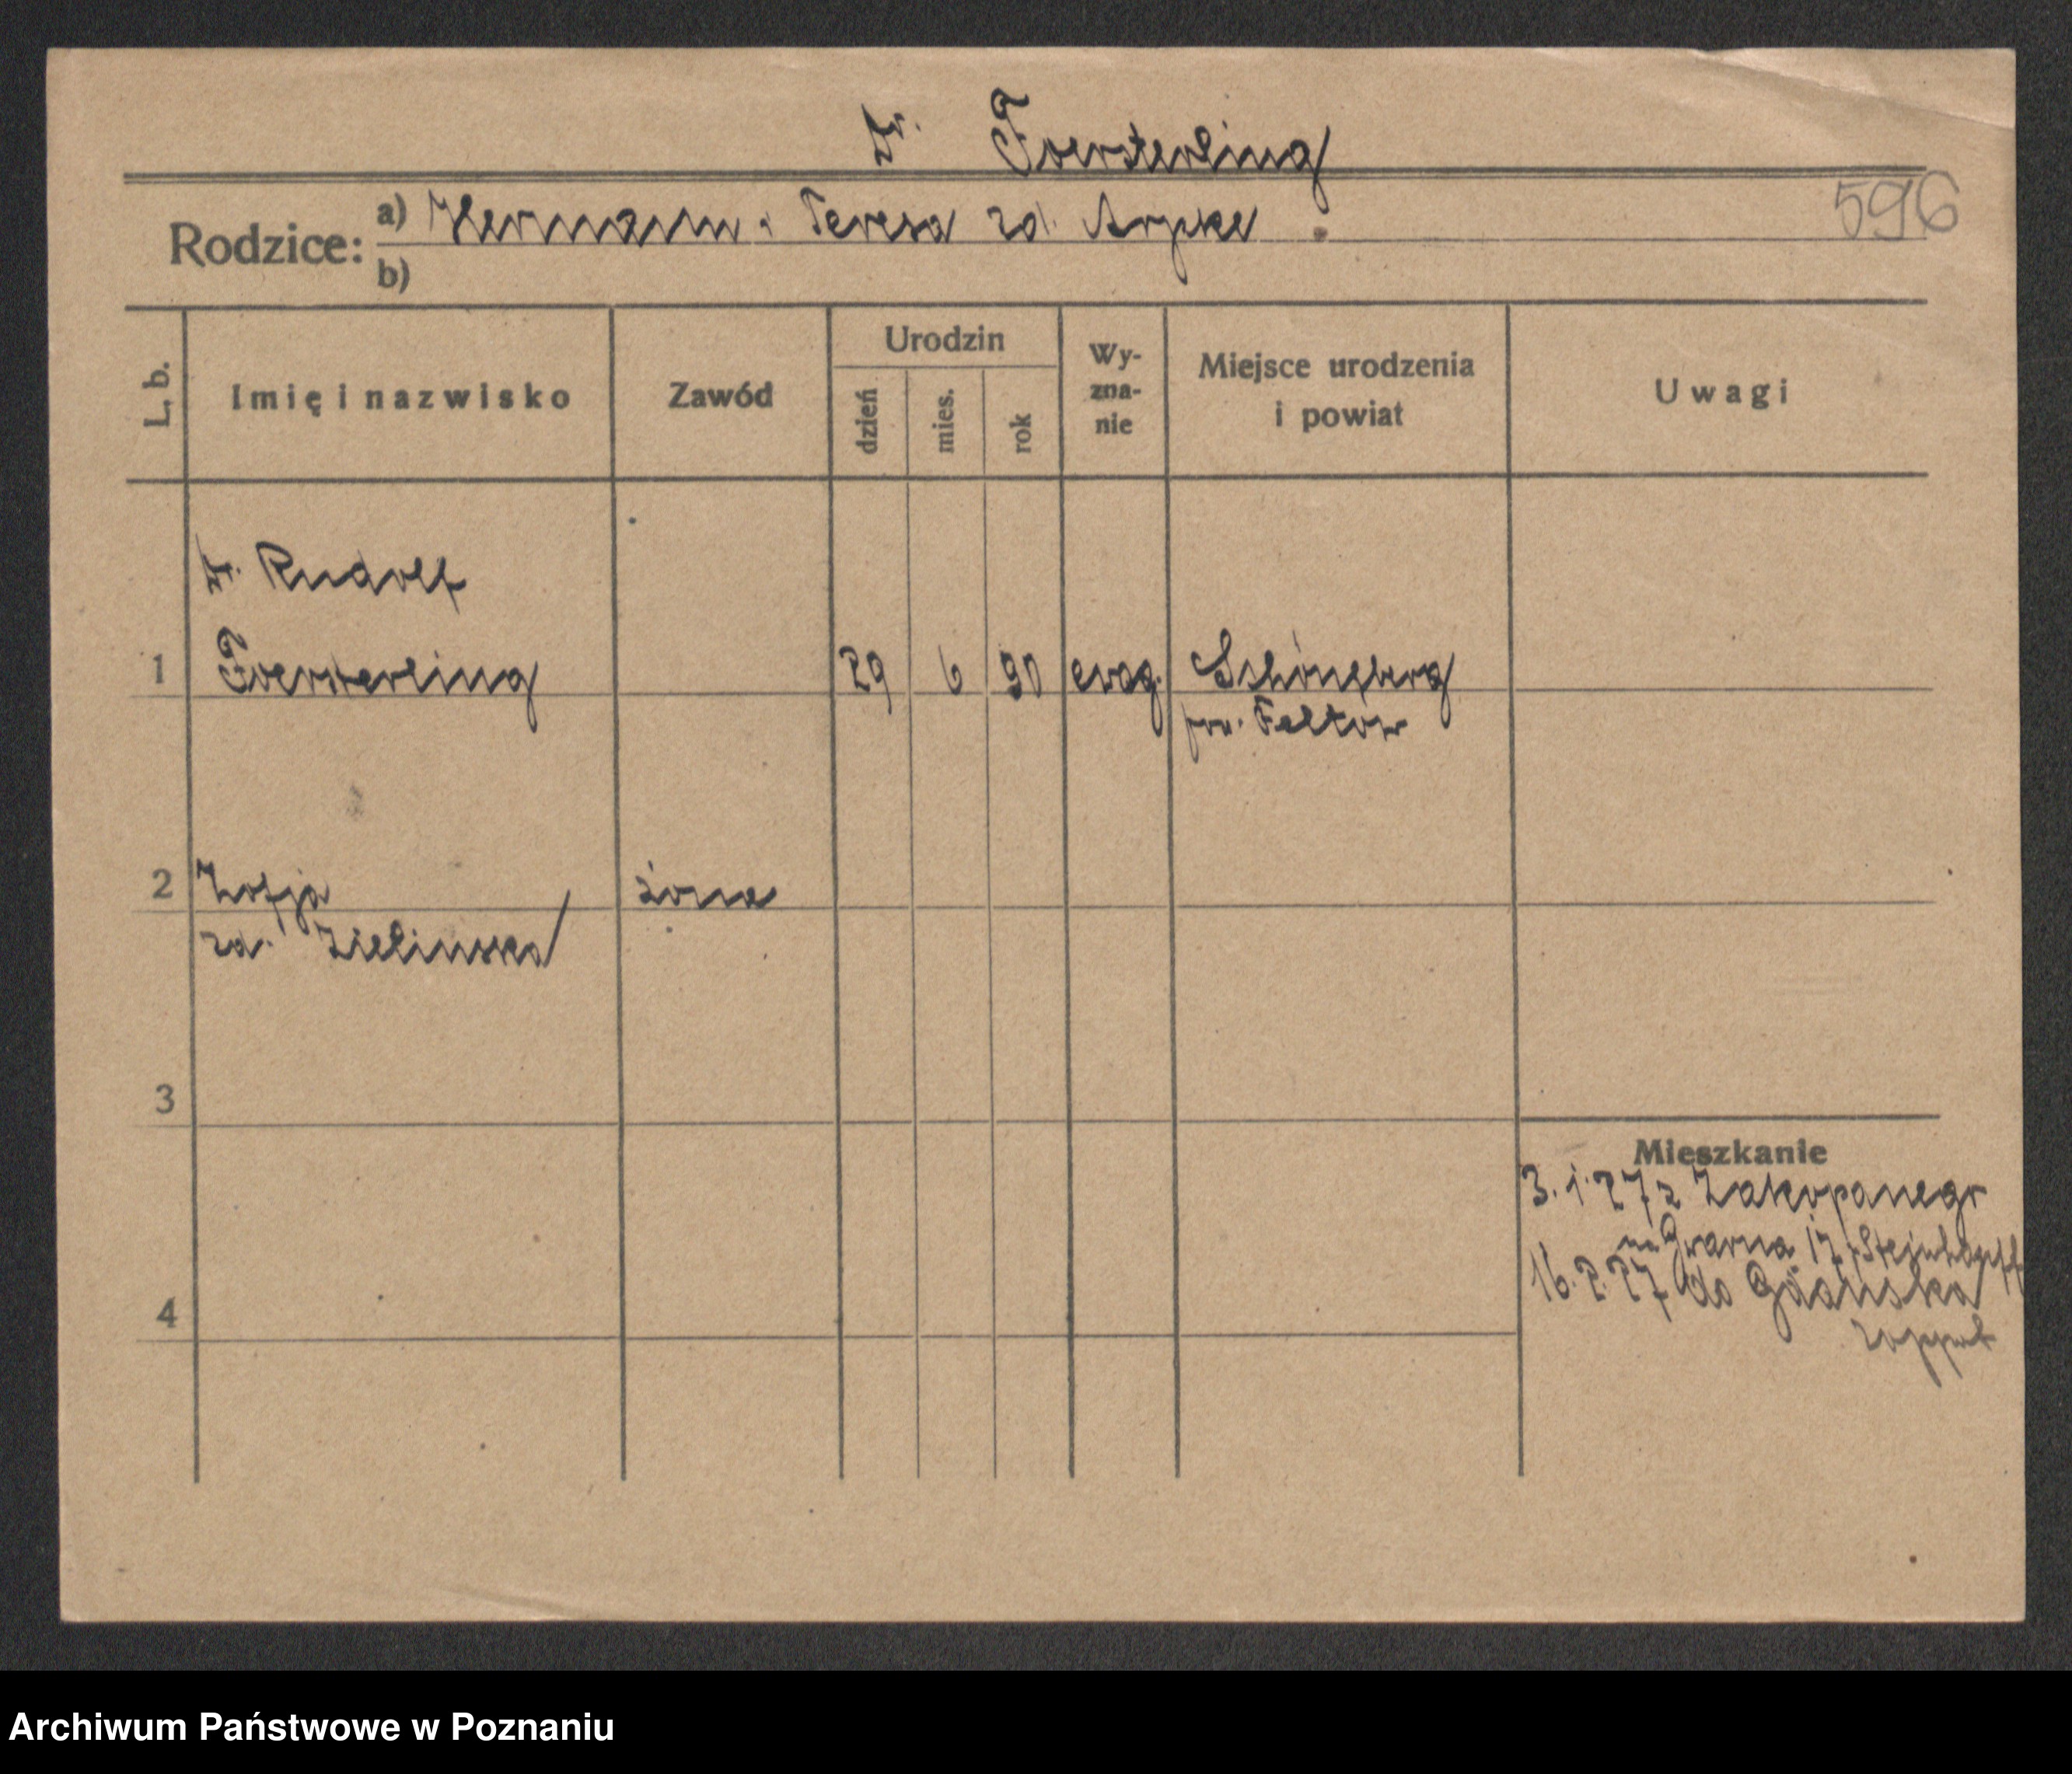 Dr. Foersterling
596
Rodzice: a) Hermann i Teresa zd. Arpke
b)
L. b.
Imię i nazwisko
Zawód
Urodzin
dzień
mies.
rok
Wy-
zna-
nie
Miejsce urodzenia
i powiat
Uwagi
Dr. Rudolf
1 Foersterling 29 6 90 ewag. Schöneberg
pow. Teltow
2 Zofja żona
zd. Zielinska
3
Mieszkanie
3.1.27 z Zakopanego
na Gwarna 17
16.2.27 do Gdańska
4
Zoppot
Archiwum Państwowe w Poznaniu